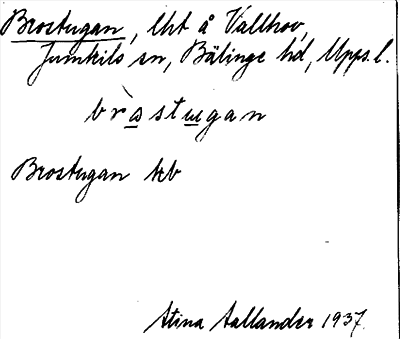 Brostugan, lht å Vallhov,
Jumkils sn, Bälinge hd, Upps.l.
bròstugan
Brostugan kb
Stina Aallander 1937.